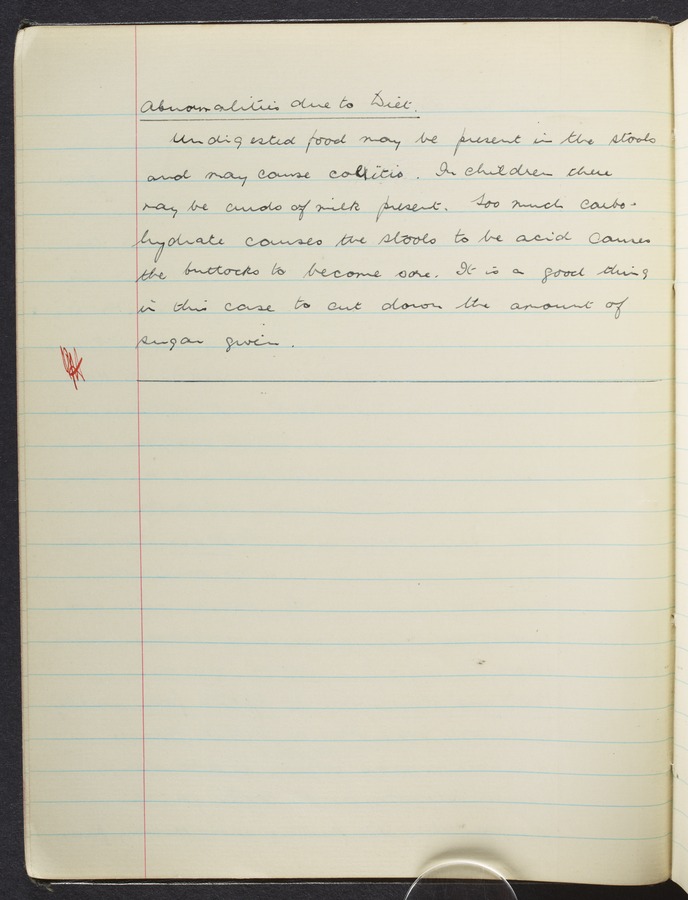 Abnormalities due to Diet.
Undigested food may be present in the stools
and may cause colitis. In children there
may be curds of milk present. Too much carbo-
hydrate causes the stools to be acid causes
the buttocks to become sore. It is a good thing
in this case to cut down the amount of
sugar given.